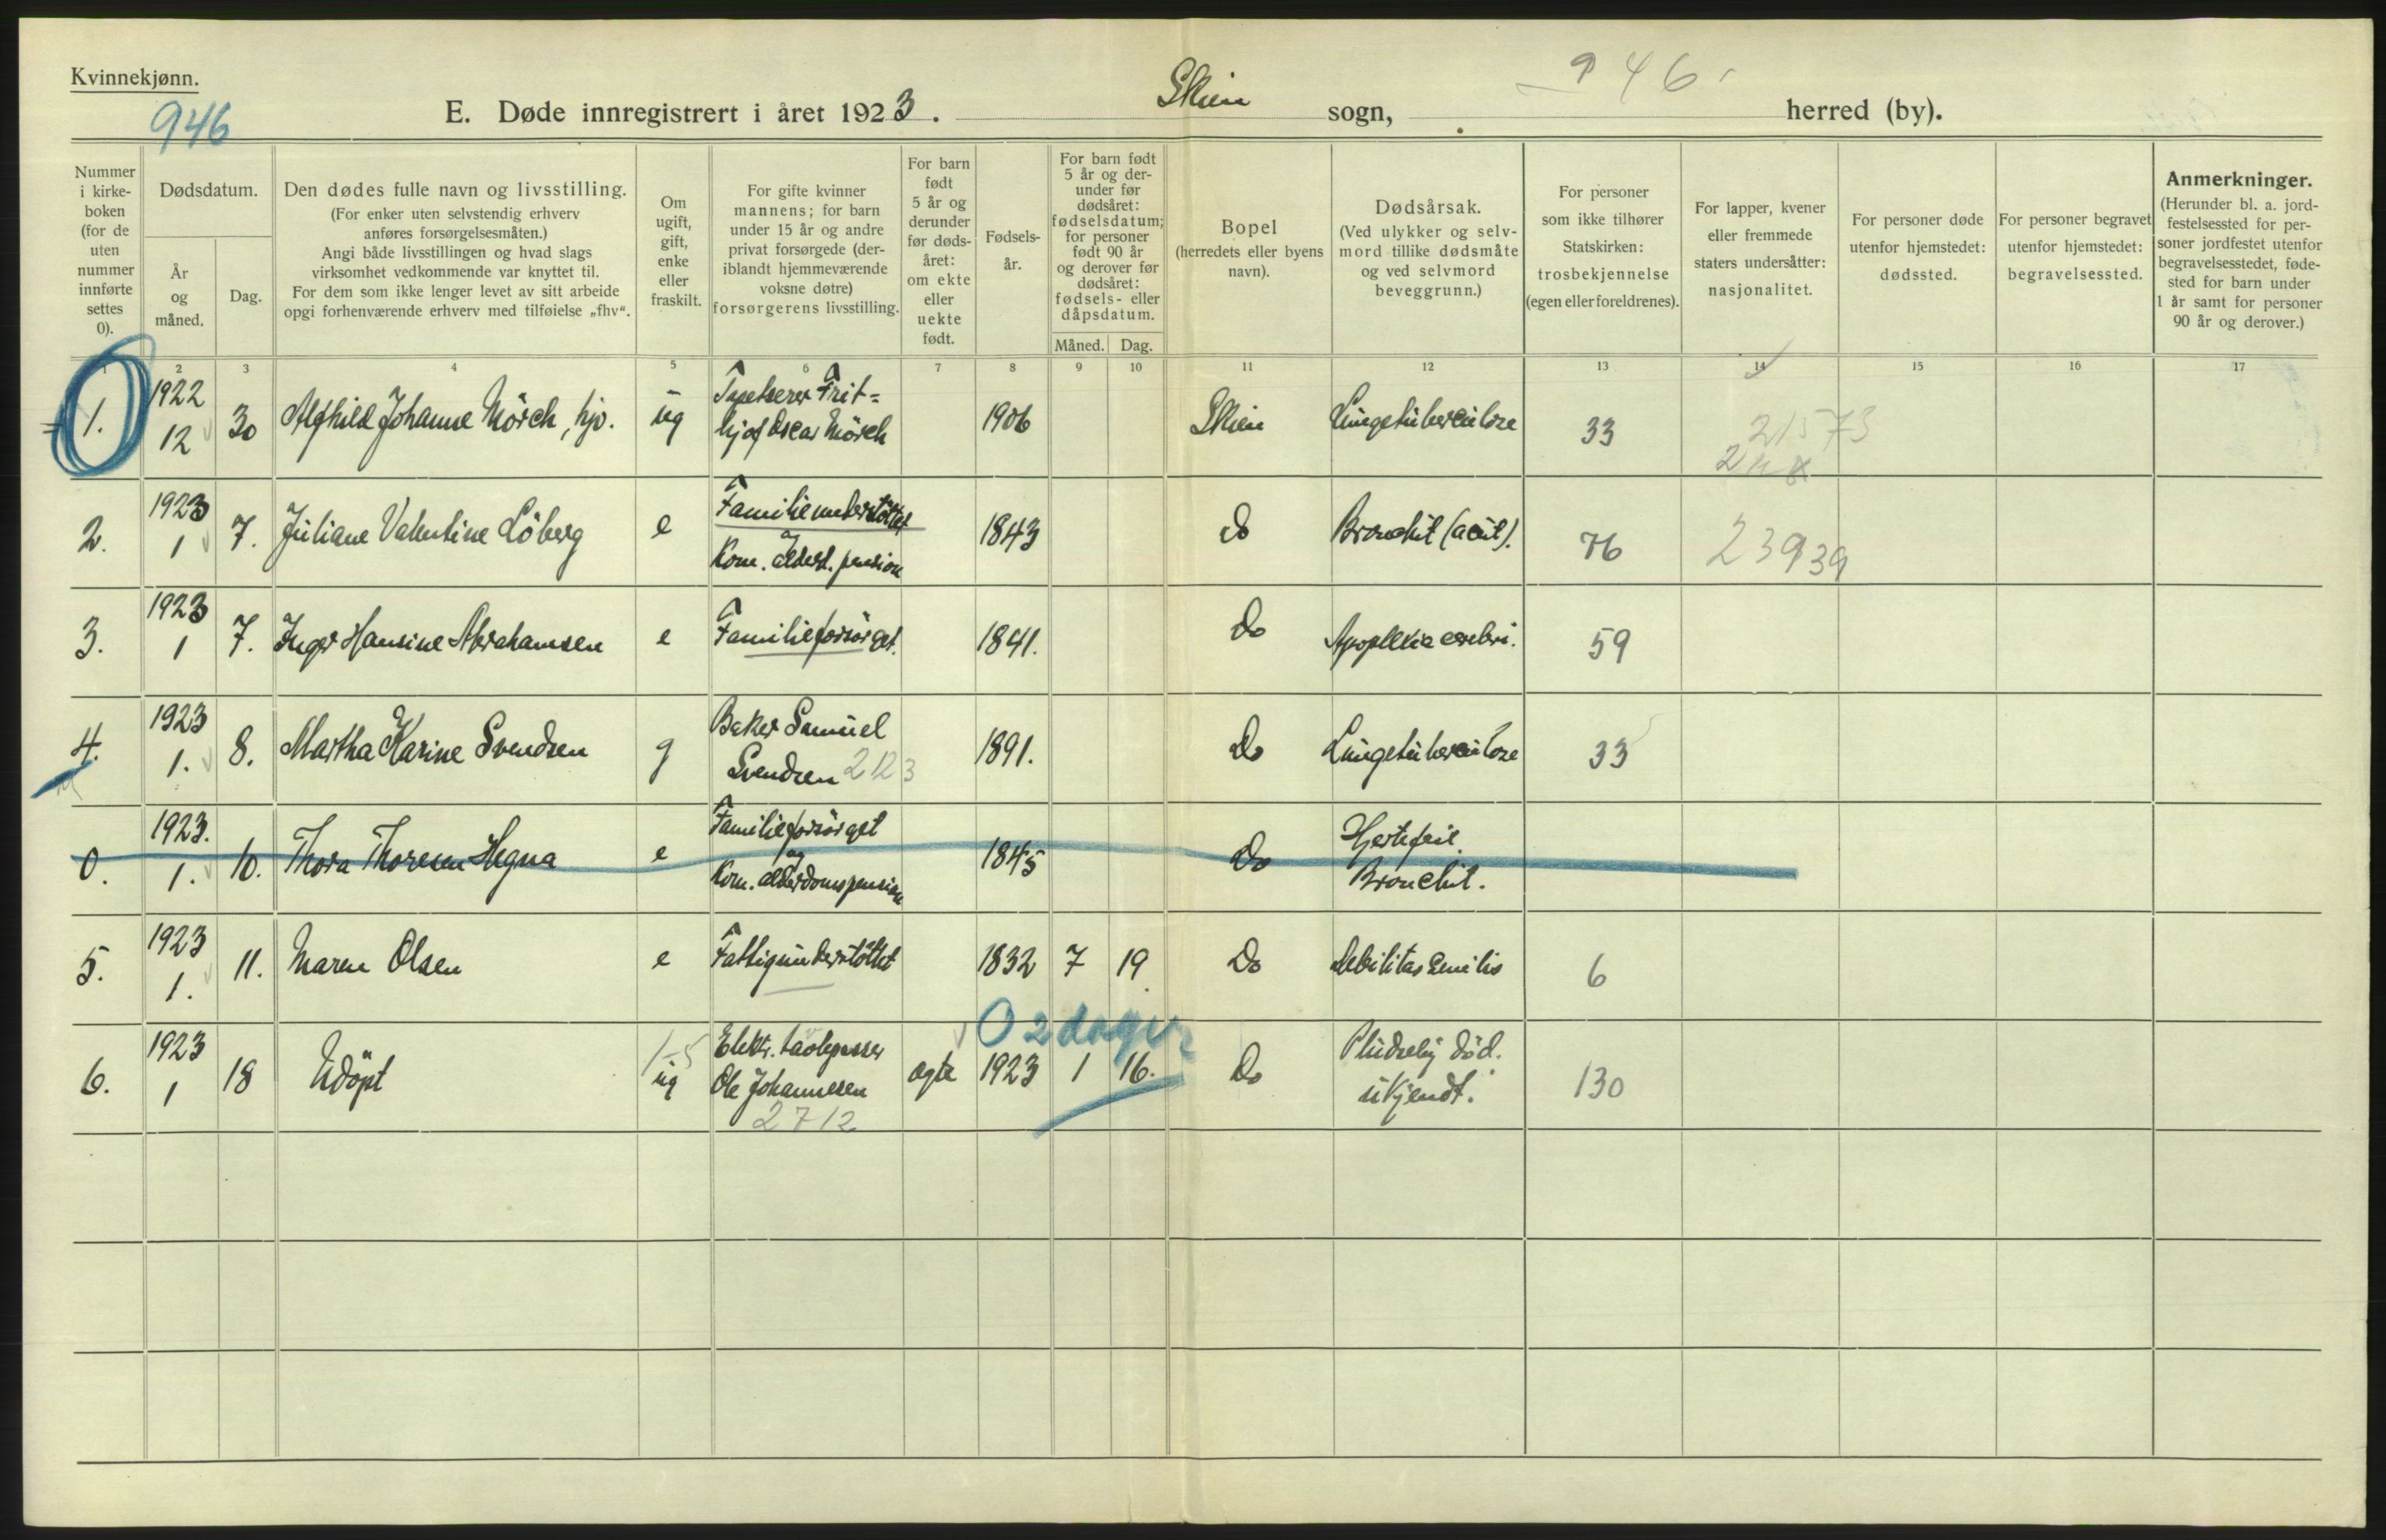 Kvinnekjønn.
946
946
E. Døde innregistrert i året 1923. Skien sogn, herred (by).
Nummer
i kirke-
boken
(for de
uten
nummer
innførte
settes
0).
Dødsdatum.
År
og
måned.
Dag.
Den dødes fulle navn og livsstilling.
(For enker uten selvstendig erhverv
anføres forsørgelsesmåten.)
Angi både livsstillingen og hvad slags
virksomhet vedkommende var knyttet til.
For dem som ikke lenger levet av sitt arbeide
opgi forhenværende erhverv med tilføielse „fhv“.
Om
ugift,
gift,
enke
eller
fraskilt.
For gifte kvinner
mannens; for barn
under 15 år og andre
privat forsørgede (der-
iblandt hjemmeværende
voksne døtre)
forsørgerens livsstilling.
For barn
født
5 år og
derunder
før døds-
året:
om ekte
eller
uekte
født.
Fødsels-
år.
For barn født
5 år og der-
under før
dødsåret:
fødselsdatum;
for personer
født 90 år
og derover før
dødsåret:
fødsels- eller
dåpsdatum.
Måned. Dag.
Bopel
(herredets eller byens
navn).
Dødsårsak.
(Ved ulykker og selv-
mord tillike dødsmåte
og ved selvmord
beveggrunn.)
For personer
som ikke tilhører
Statskirken:
trosbekjennelse
(egen eller foreldrenes).
For lapper, kvener
eller fremmede
staters undersåtter:
nasjonalitet.
For personer døde
utenfor hjemstedet:
dødssted.
For personer begravet
utenfor hjemstedet:
begravelsessted.
Anmerkninger.
(Herunder bl. a. jord-
festelsessted for per-
soner jordfestet utenfor
begravelsesstedet, føde-
sted for barn under
1 år samt for personer
90 år og derover.)
1 2 3 4 5 6 7 8 9 10 11 12 13 14 15 16 17
1. 1922 12 30 Alfhild Johanne Mörch, hjv. ug Tapetserer Frit=
hjof Oscar Mörch 1906 Skien Lungetuberculose 33 21573
2. 1923 1 7. Juliane Valentine Löberg e Familieunderstöttet
og
Kom. alderd. pension 1843 do Bronchit (acut). 76 23939
3. 1923 1 7. Inger Hansine Abrahamsen e Familieforsörget. 1841. Do Apoplexia cerebri. 59
4. 1923 1. 8. Martha Karine Svendsen g Baker Samuel
Svendsen 2123 1891. Do Lungetuberculose 33
0. 1923. 1. 10. Thora Thoresen Hegna e Familieforsörget
og
Kom. alderdomspension 1845 Do Hjertefeil.
Bronchit.
5. 1923 1. 11. Maren Olsen e Fattigunderstöttet 1832 7 19 Do Debilitas senilis 6
0 2 dager
6. 1923 1 18 Udöpt ug Elektr. tavlepasser
Ole Johannesen
2712 ægte 1923 1 16. Do Pludselig död.
ukjendt. 130